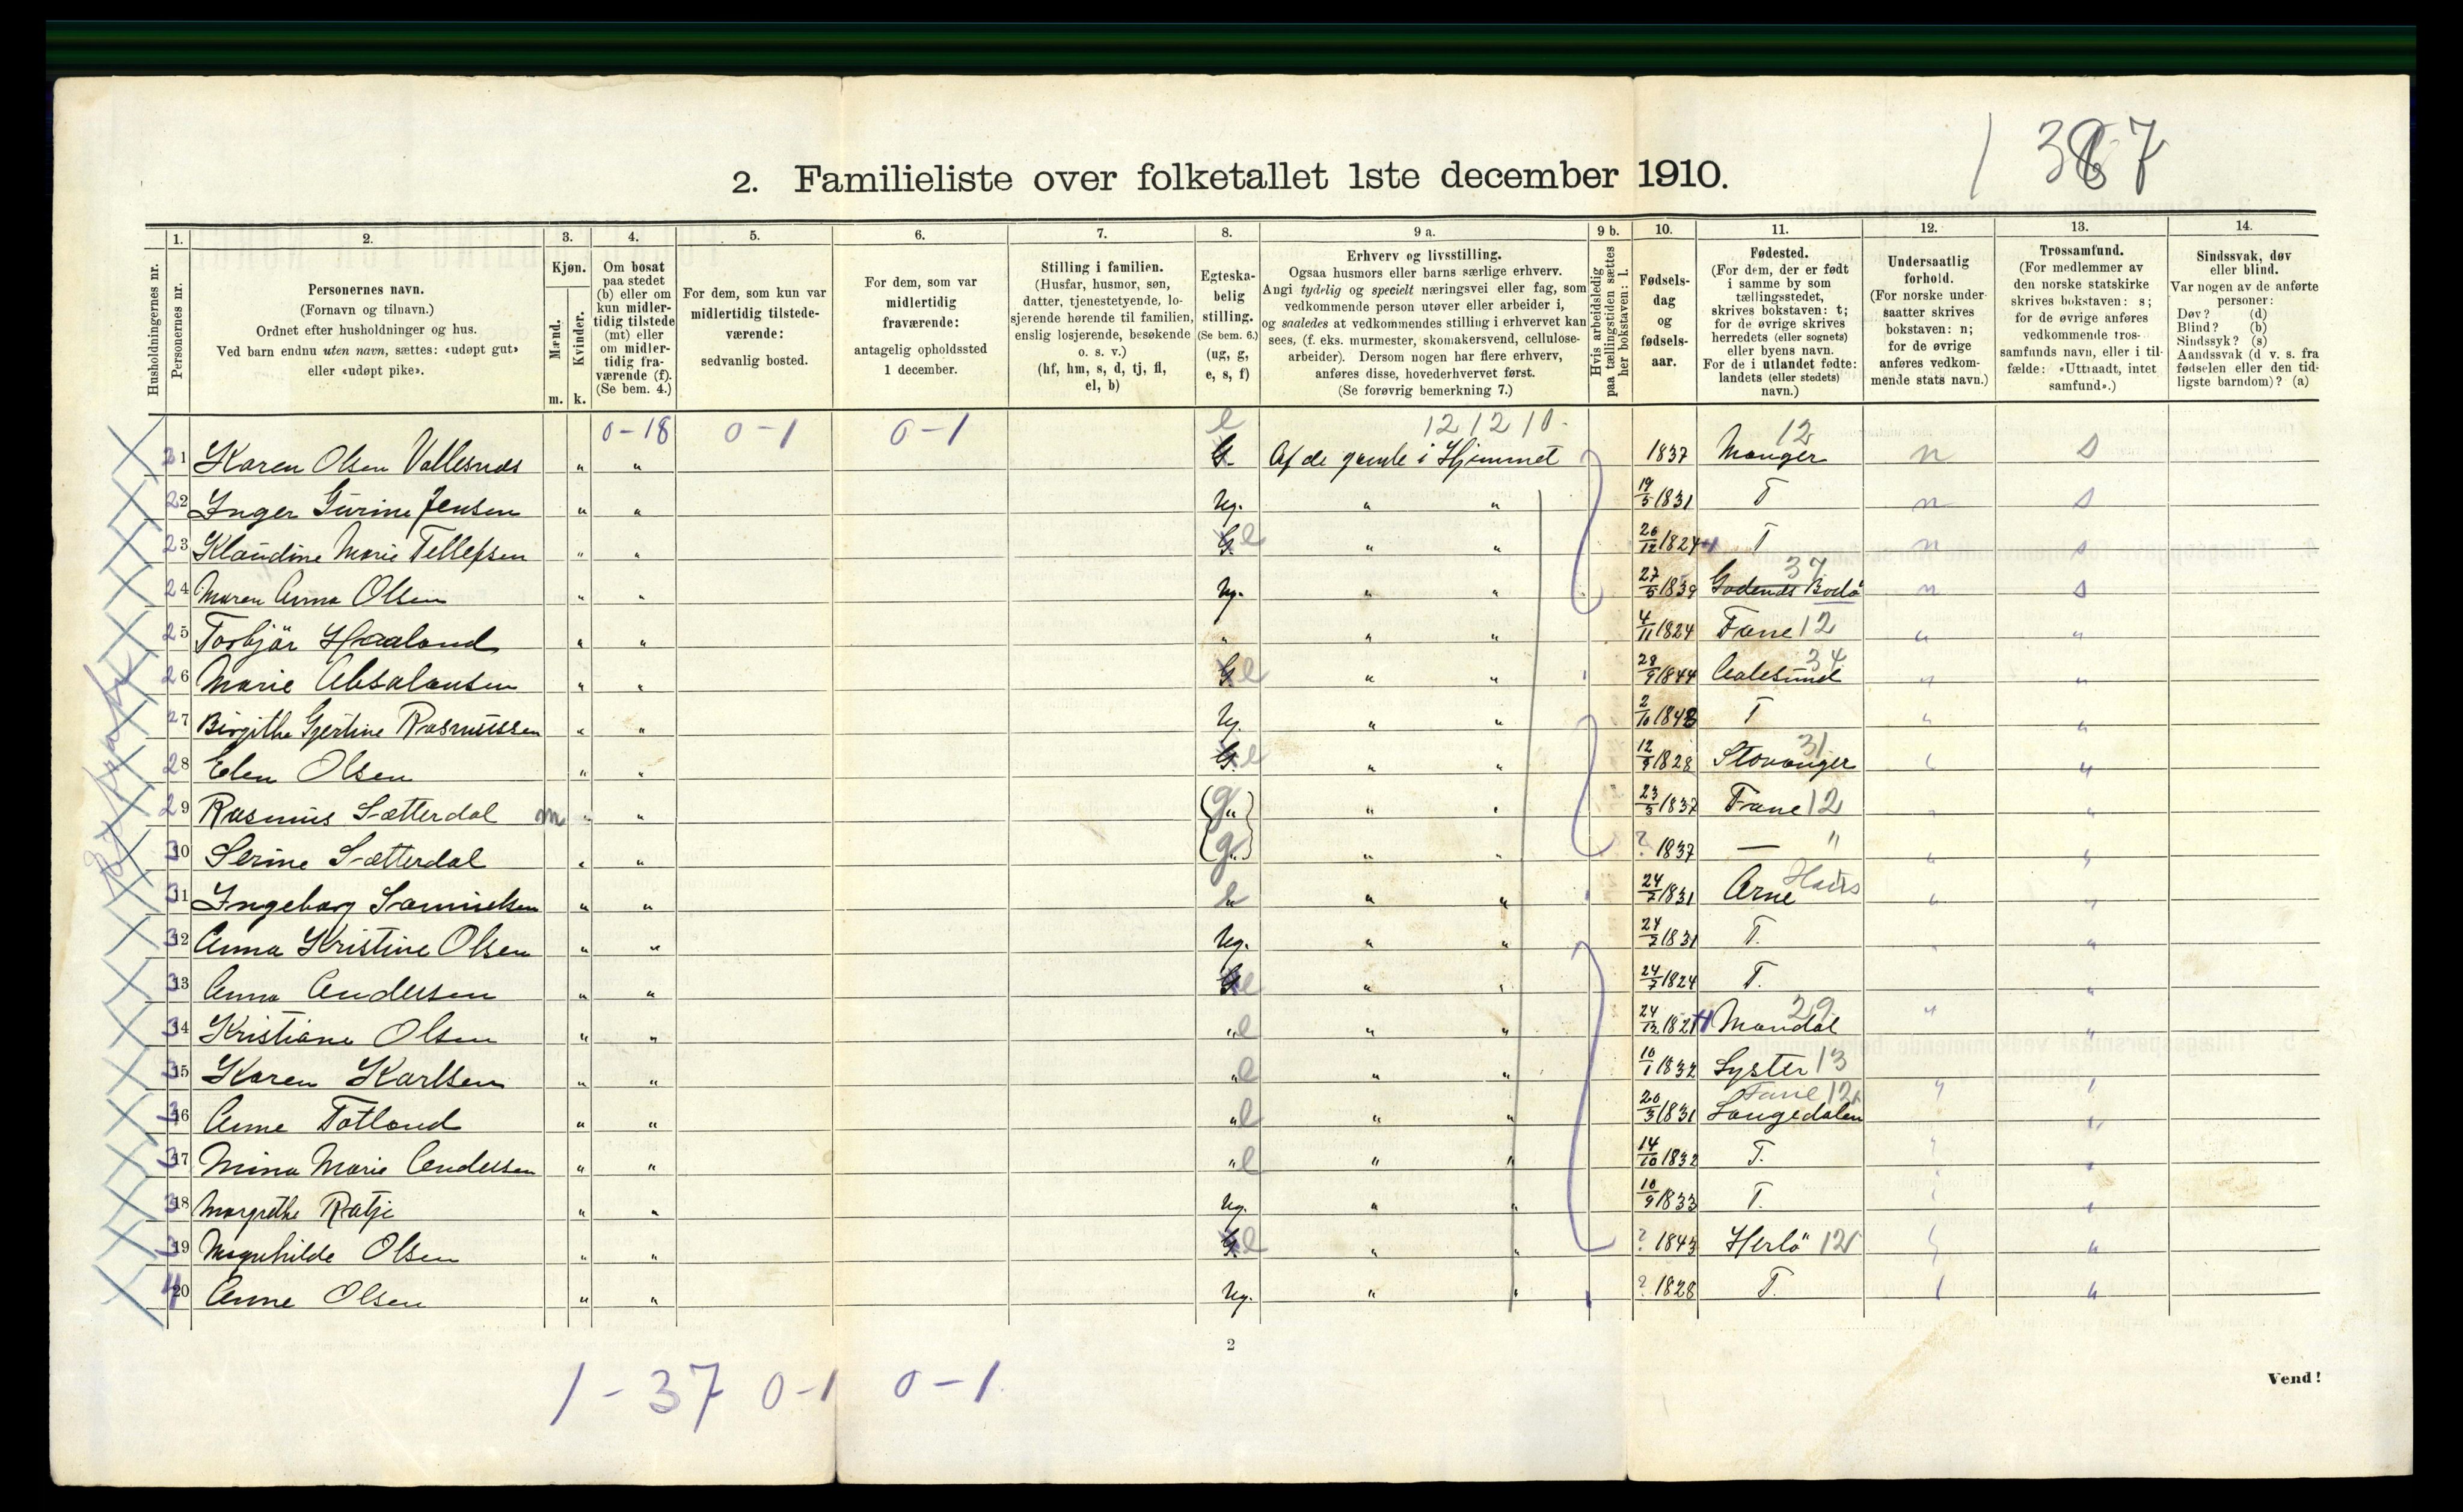 1 387
2. Familieliste over folketallet 1ste december 1910.
Husholdningernes nr.
1. Personernes nr.
2. Personernes navn.
(Fornavn og tilnavn.)
Ordnet efter husholdninger og hus.
Ved barn endnu uten navn, sættes: «udøpt gut»
eller «udøpt pike».
3. Kjøn.
Mænd. m.
Kvinder. k.
4. Om bosat
paa stedet
(b) eller om
kun midler-
tidig tilstede
(mt) eller
om midler-
tidig fra-
værende (f).
(Se bem. 4.)
5. For dem, som kun var
midlertidig tilstede-
værende:
sedvanlig bosted.
6. For dem, som var
midlertidig
fraværende:
antagelig opholdssted
1 december.
7. Stilling i familien.
(Husfar, husmor, søn,
datter, tjenestetyende, lo-
sjerende hørende til familien,
enslig losjerende, besøkende
o. s. v.)
(hf, hm, s, d, tj, fl,
el, b)
8. Egteska-
belig
stilling.
(Se bem. 6.)
(ug, g,
e, s, f)
9 a. Erhverv og livsstilling.
Ogsaa husmors eller barns særlige erhverv.
Angi tydelig og specielt næringsvei eller fag, som
vedkommende person utøver eller arbeider i,
og saaledes at vedkommendes stilling i erhvervet kan
sees, (f. eks. murmester, skomakersvend, cellulose-
arbeider). Dersom nogen har flere erhverv,
anføres disse, hovederhvervet først.
(Se forøvrig bemerkning 7.)
9 b. Hvis arbeidsledig
paa tællingstiden sættes
her bokstaven: l.
10. Fødsels-
dag
og
fødsels-
aar.
11. Fødested.
(For dem, der er født
i samme by som
tællingsstedet,
skrives bokstaven: t;
for de øvrige skrives
herredets (eller sognets)
eller byens navn.
For de i utlandet fødte:
landets (eller stedets)
navn.)
12. Undersaatlig
forhold.
(For norske under-
saatter skrives
bokstaven: n;
for de øvrige
anføres vedkom-
mende stats navn.)
13. Trossamfund.
(For medlemmer av
den norske statskirke
skrives bokstaven: s;
for de øvrige anføres
vedkommende tros-
samfunds navn, eller i til-
fælde: «Uttraadt, intet
samfund».)
14. Sindssvak, døv
eller blind.
Var nogen av de anførte
personer:
Døv? (d)
Blind? (b)
Sindssyk? (s)
Aandssvak (d v. s. fra
fødselen eller den tid-
ligste barndom)? (a)
0-18 0-1 0-1 e 12 12 10.
21 Karen Olsen Vallesnes " " G. Af de gamle i Hjemmet 1837 Manger 12 n s
22 Inger Gurine Jensen " " Ug. " " 19/5 1831 T n s
23 Klaudine Marie Tellefsen " " G. e " " 26/12 1824 T n s
24 Maren Anna Olsen " " Ug. " " 27/5 1839 Bodö 37 n s
25 Torbjör Haaland " " " " " 4/11 1824 Fane 12 " "
26 Marie Absalonsen " " G. e " " 28/9 1844 Aalesund 34 " "
27 Birgithe Gjertine Rasmussen " " Ug. " " 2/10 1848 T " "
28 Elen Olsen " " G. e " " 12/9 1828 Stavanger 31 " "
29 Rasmus Sætterdal m " " (g) " " 23/3 1837 Fane 12 " "
30 Serine Sætterdal " " (g) " " ? 1837 — " " "
31 Ingeborg Samuelsen " " e " " 24/7 1831 Arne Haus " "
32 Anna Kristine Olsen " " Ug. " " 24/7 1831 T. " "
33 Anna Andersen " " G e " " 24/7 1824 T. "
34 Kristiane Olsen " " " e " " 24/12 1821 Mandal 29 " "
35 Karen Karlsen " " " e " " 10/1 1832 Lyster 13
36 Anne Totland " " " e " " 20/3 1831 Langedalen Fane 12 " "
37 Mina Marie Andersen " " " e " " 14/10 1832 T. " "
38 Margrethe Ratje " " Ug. " " 10/9 1833 T. " "
39 Magnhilde Olsen " " G. e " " ? 1843 Herlö 12 " "
40 Anne Olsen " " Ug. " " ? 1828 T. " "
2
Vend!
1-37 0-1 0-1